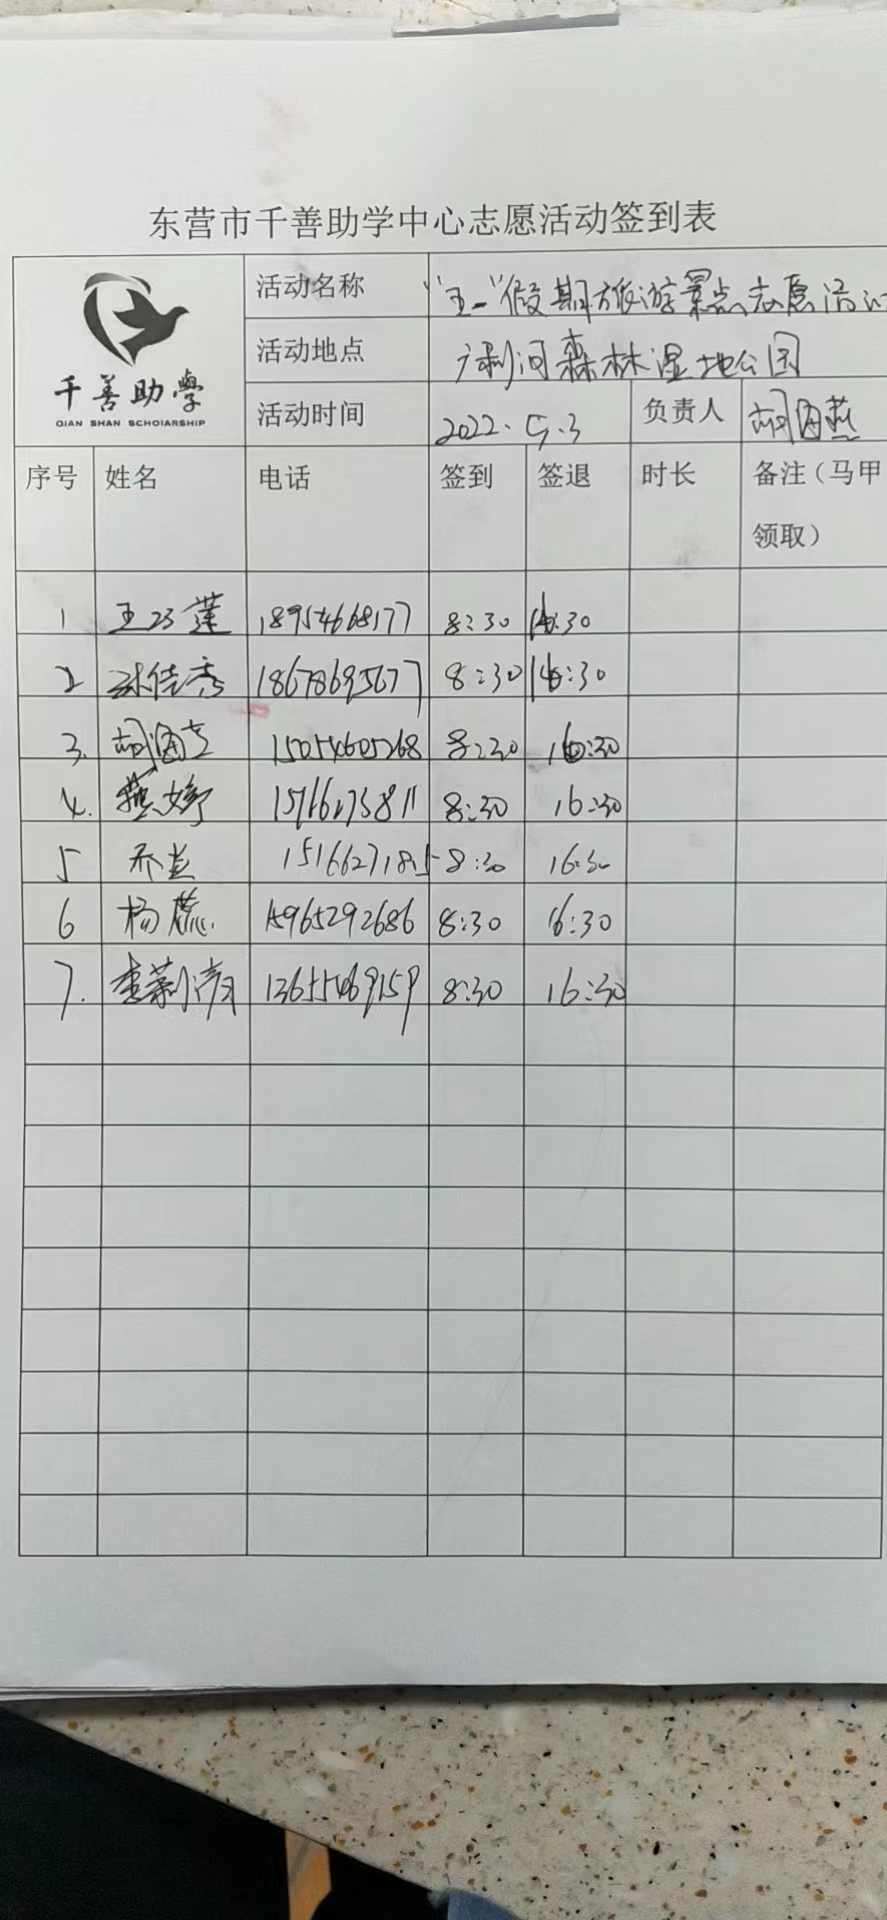 东营市千善助学中心志愿活动签到表
千善助學
QIAN SHAN SCHOIARSHIP
活动名称 "五一"假期旅游景点志愿活动
活动地点 广利河森林湿地公园
活动时间 2022.5.3 负责人 胡海燕
序号 姓名 电话 签到 签退 时长 备注（马甲领取）
1 王巧莲 18954668177 8:30 16:30
2 佳秀 18678695677 8:30 16:30
3. 胡海 15054605268 8:30 16:30
4. 燕婷 15766273811 8:30 16:30
5 15166271815 8:30 16:30
6 杨蕊 15965292686 8:30 16:30
7. 李莉 13655469159 8:30 16:30